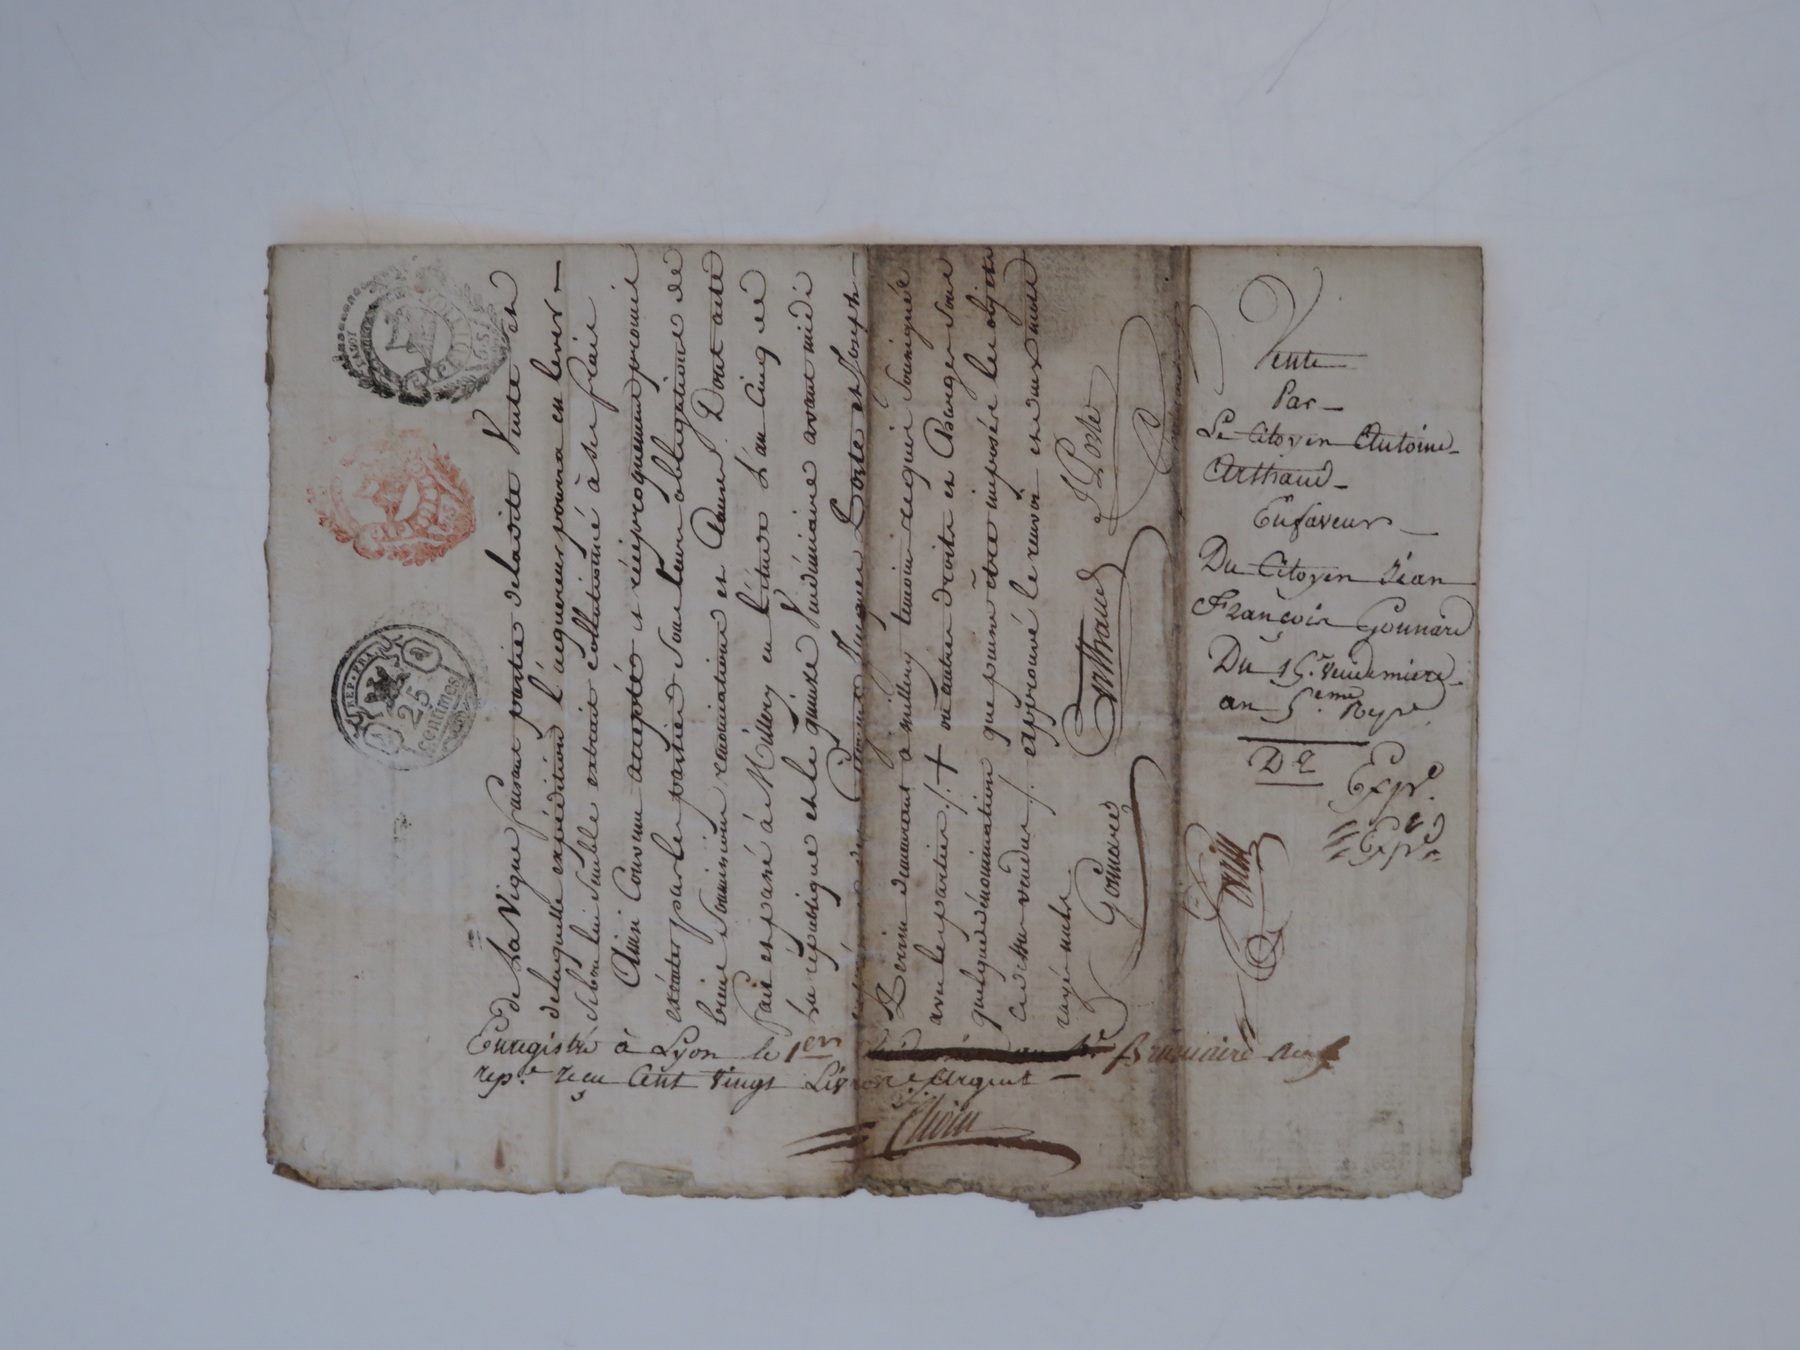 REP. FRA.
25
centimes
de La Vigne faisant partie de ladite Vente et
de laquelle expédition l'acquereur pourra en lever —
si bon lui semble extrait collationné à ses frais
Ainsi Convenu accepté et réciproquement promis
exécuter par les parties sous leurs obligations de
biens soumissions renonciations et Clauses. Dont acte
fait et passé à Millery en l'étude L'an Cinq de
La république et le quinze Vendémiaire avant midi
Porte et Joseph —
demeurant à Millery témoins requis soussignés
avec les parties /. + ou autres droits et Charges sous
quelques dénomination que puisse être imposés les objets
ci dessus vendus /. approuvé le renvoi et deux mots
rayés nuls.
Gonnard Arthaud J Porte
Enregistré à Lyon le 1er Brumaire
rep.e reçu Cent vingt Livres Argent —
Vente
Par —
Le Citoyen Antoine —
Arthaud —
En faveur —
Du Citoyen Jean
François Gonnard
Du 15.e Vendemiere —
an 5.eme Rep.e
Exp.e
Exp.e